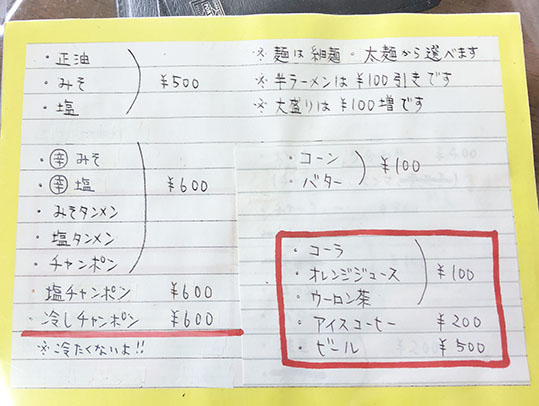 ・正油
・みそ ¥500
・塩
・辛みそ
・辛塩 ¥600
・みそタンメン
・塩タンメン
・チャンポン
塩チャンポン ¥600
・冷しチャンポン ¥600
※冷たくないよ!!
※麺は細麺・太麺から選べます
※半ラーメンは¥100引きです
※大盛りは¥100増です
・コーン ¥100
・バター
・コーラ
・オレンジジュース ¥100
・ウーロン茶
・アイスコーヒー ¥200
・ビール ¥500